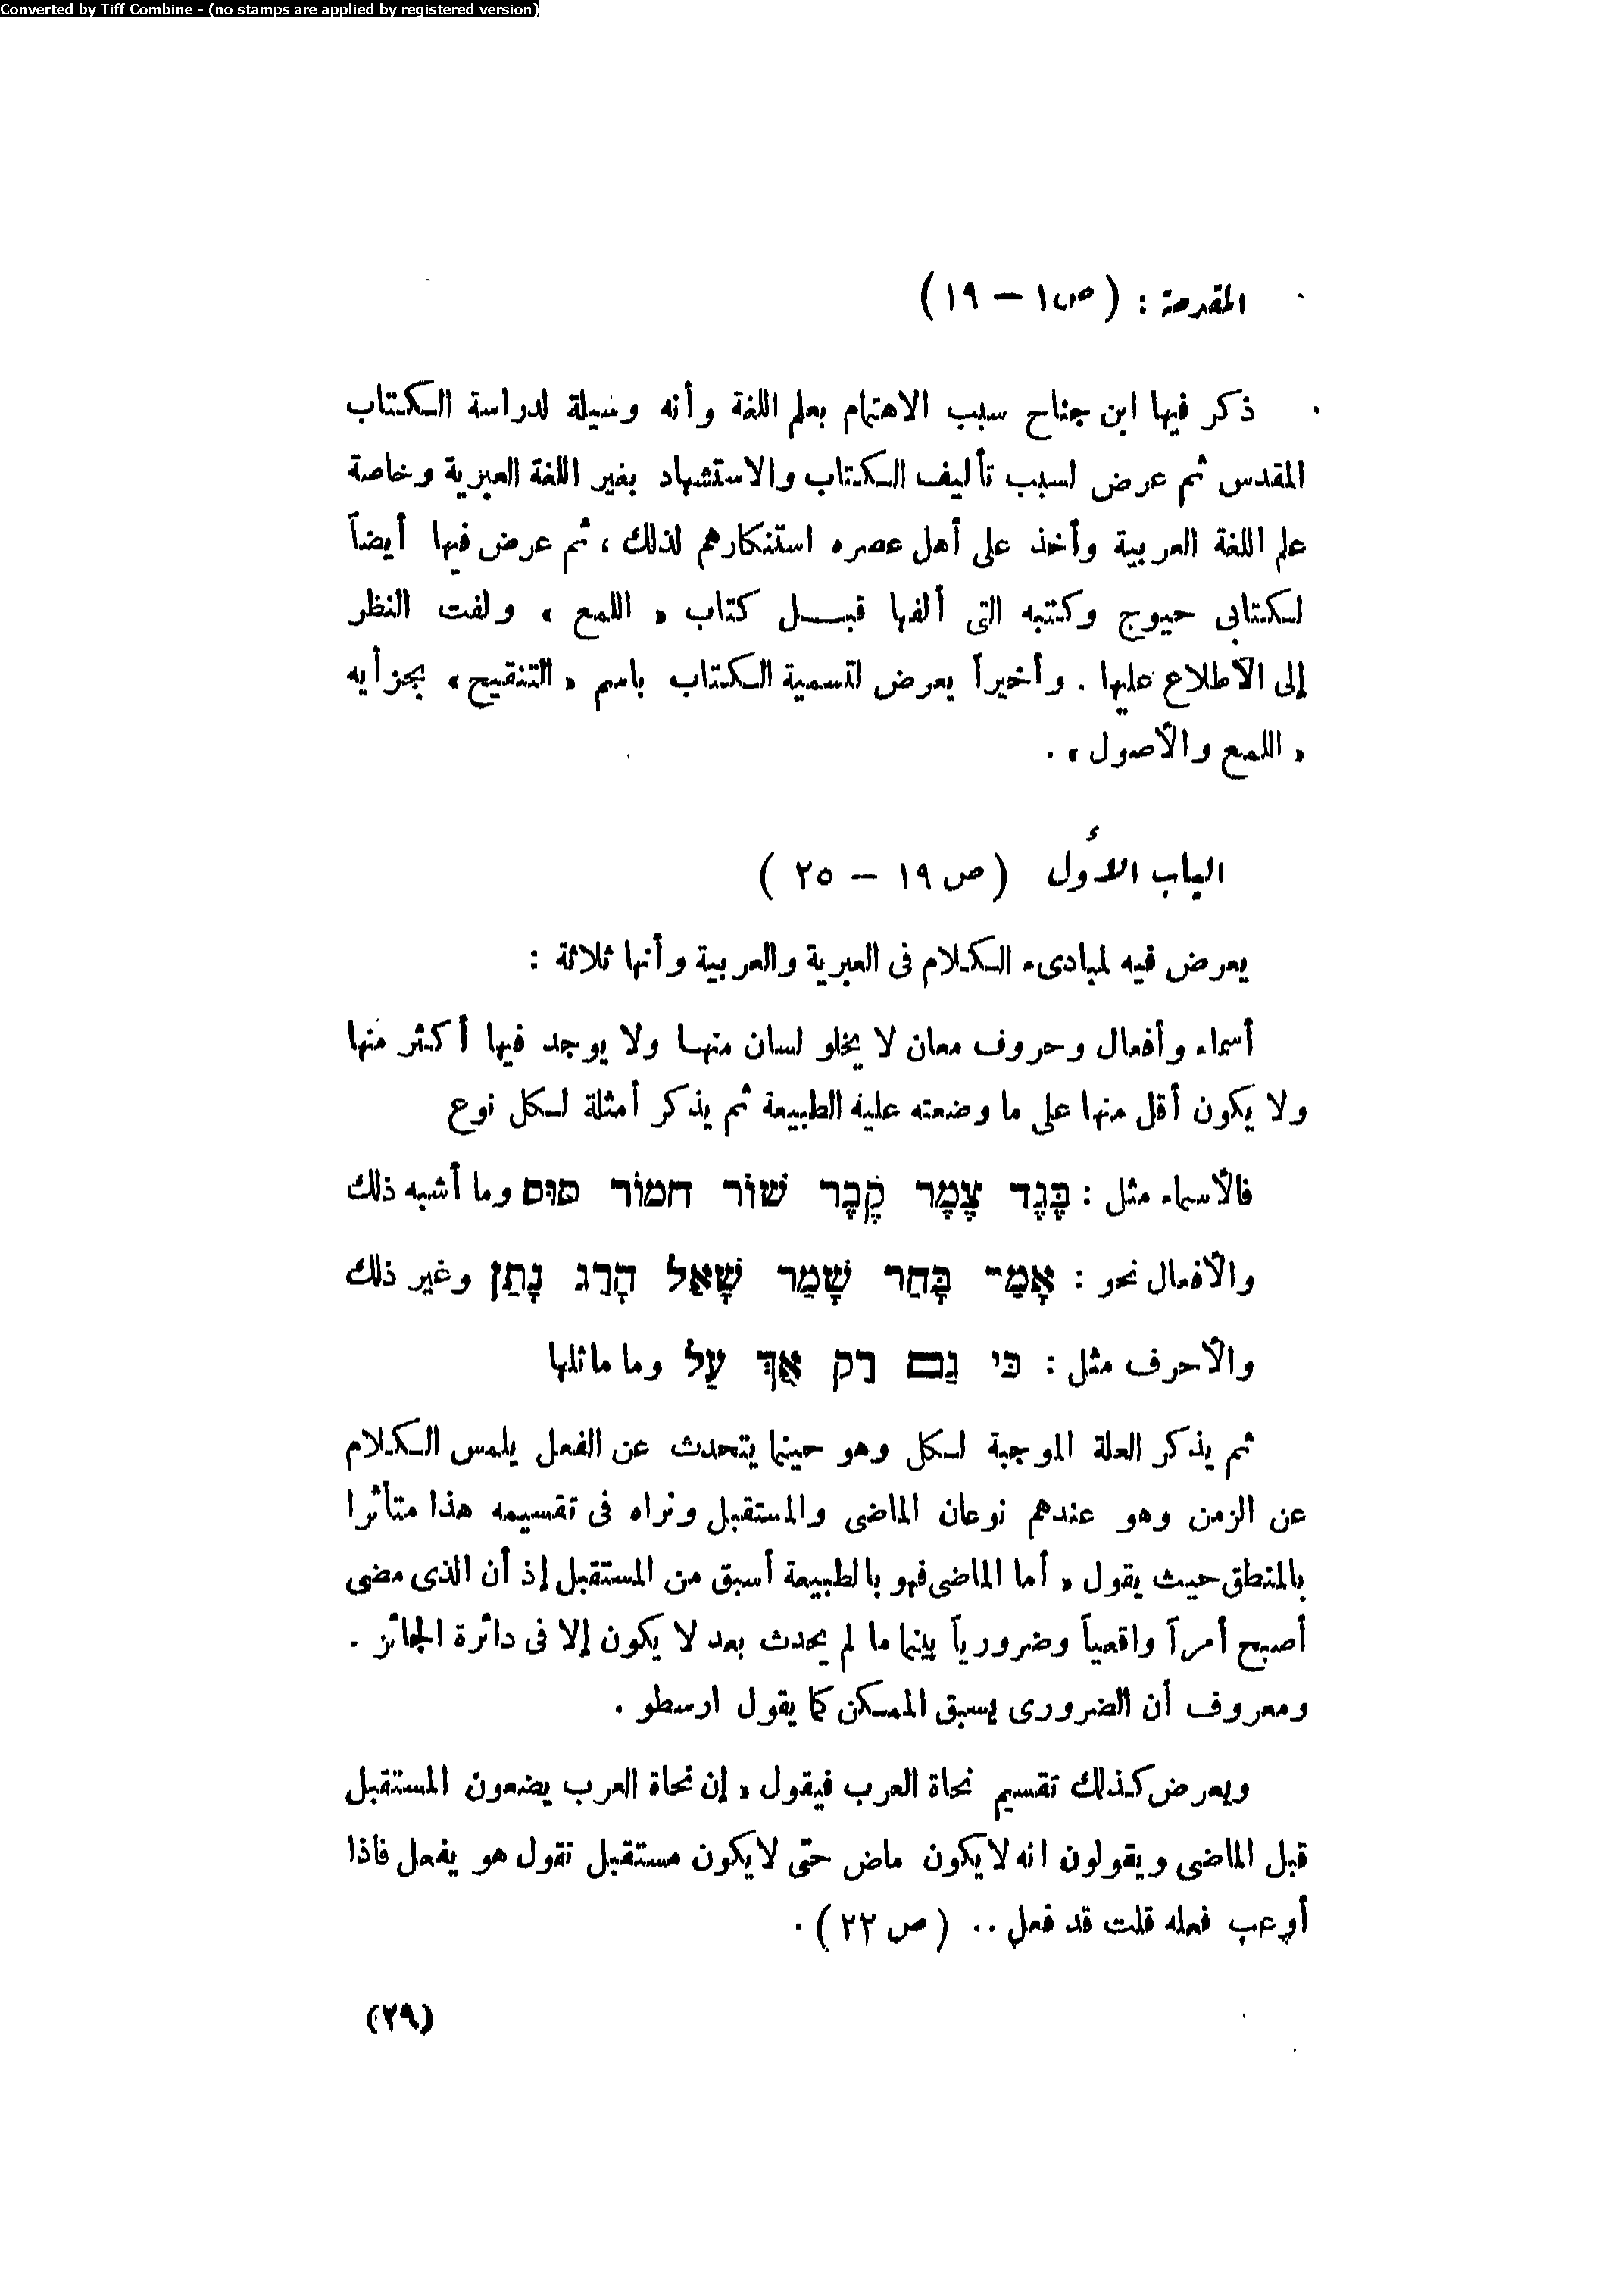 Converted by Tiff Combine - (no stamps are applied by registered version)
المقدمة : (ص١ — ١٩)
ذكر فيها ابن جناح سبب الاهتمام بعلم اللغة وأنه وسيلة لدراسة الكتاب
المقدس ثم عرض لسبب تأليف الكتاب والاستشهاد بغير اللغة العبرية وخاصة
علم اللغة العربية وأخذ على أهل عصره استنكارهم لذلك ، ثم عرض فيها أيضاً
لكتابى حيوج وكتبه التى ألفها قبل كتاب « اللمع » ولفت النظر
إلى الاطلاع عليها . وأخيراً يعرض لتسمية الكتاب باسم « التنقيح » بجزأيه
« اللمع والأصول » .
الباب الأول (ص ١٩ — ٢٥ )
يعرض فيه لمبادىء الكلام فى العبرية والعربية وأنها ثلاثة :
أسماء وأفعال وحروف معان لا يخلو لسان منها ولا يوجد فيها أكثر منها
ولا يكون أقل منها على ما وضعته عليه الطبيعة ثم يذكر أمثلة لكل نوع
فالأسماء مثل : בֶּגֶד צֶמֶר קֶבֶר שׁוֹר חמוֹר סוּס وما أشبه ذلك
والأفعال نحو : אָמַ־ בָּחַר שָׁמַר שָׁאַל הָרַג נָתַן وغير ذلك
والأحرف مثل : כּי גַם רַק אַךְ עַל وما ماثلها
ثم يذكر العلة الموجبة لكل وهو حينما يتحدث عن الفعل يلمس الكلام
عن الزمن وهو عندهم نوعان الماضى والمستقبل ونراه فى تقسيمه هذا متأثرا
بالمنطق حيث يقول « أما الماضى فهو بالطبيعة أسبق من المستقبل إذ أن الذى مضى
أصبح أمراً واقعياً وضرورياً بينما ما لم يحدث بعد لا يكون إلا فى دائرة الجائز .
ومعروف أن الضرورى يسبق الممكن كما يقول ارسطو .
ويعرض كذلك تقسيم نحاة العرب فيقول « إن نحاة العرب يضعون المستقبل
قبل الماضى ويقولون انه لا يكون ماض حتى لا يكون مستقبل تقول هو يفعل فاذا
أوعب فعله قلت قد فعل .. (ص ٢٢) .
(٢٩)